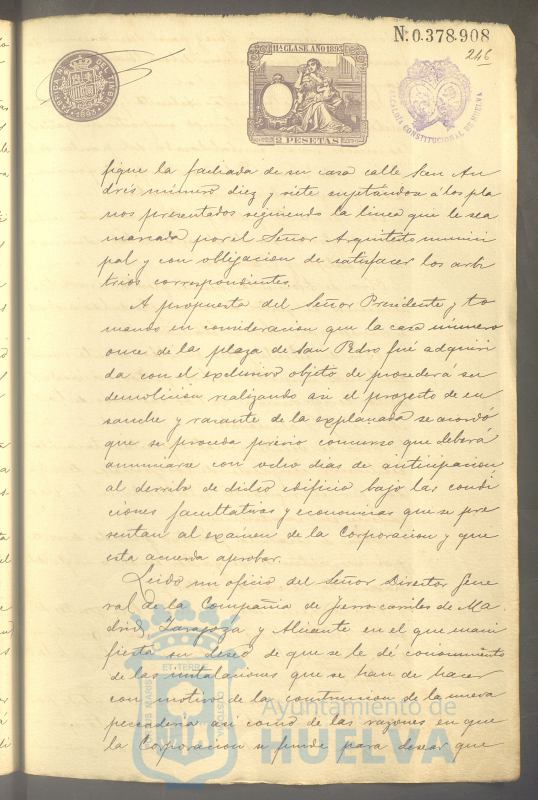 Nº 0.378.908
246
FABRICA NAL DEL TIMBRE
1893
11ª CLASE. AÑO 1893
2 PESETAS
ALCALDIA CONSTITUCIONAL DE HUELVA
fique la fachada de su casa calle San An
drés número diez y siete sujetándose á los pla
nos presentados siguiendo la linea que le sea
marcada por el Señor Arquitecto munici
pal y con obligacion de satisfacer los arbi
trios correspondientes.
A propuesta del Señor Presidente y to
mando en consideracion que la casa número
once de la plaza de San Pedro fué adquiri
da con el exclusivo objeto de proceder á su
demolicion realizando asi el proyecto de en
sanche y rasante de la explanada se acordó
que se proceda previo concurso que deberá
anunciarse con ocho dias de anticipacion
al derribo de dicho edificio bajo las condi
ciones facultativas y económicas que se pre
sentan al examen de la Corporacion y que
esta acuerda aprobar.
Leido un oficio del Señor Director Gene
ral de la Compañia de ferro-carriles de Ma
drid, Zaragoza y Alicante en el que mani
fiesta su deseo de que se le dé conocimiento
de las instalaciones que se han de hacer
con motivo de la construccion de la nueva
pescaderia asi como de las razones en que
la Corporacion se funde para desear que
PORTUS MARIS ET TERRE CUSTODIA
Ayuntamiento de
HUELVA